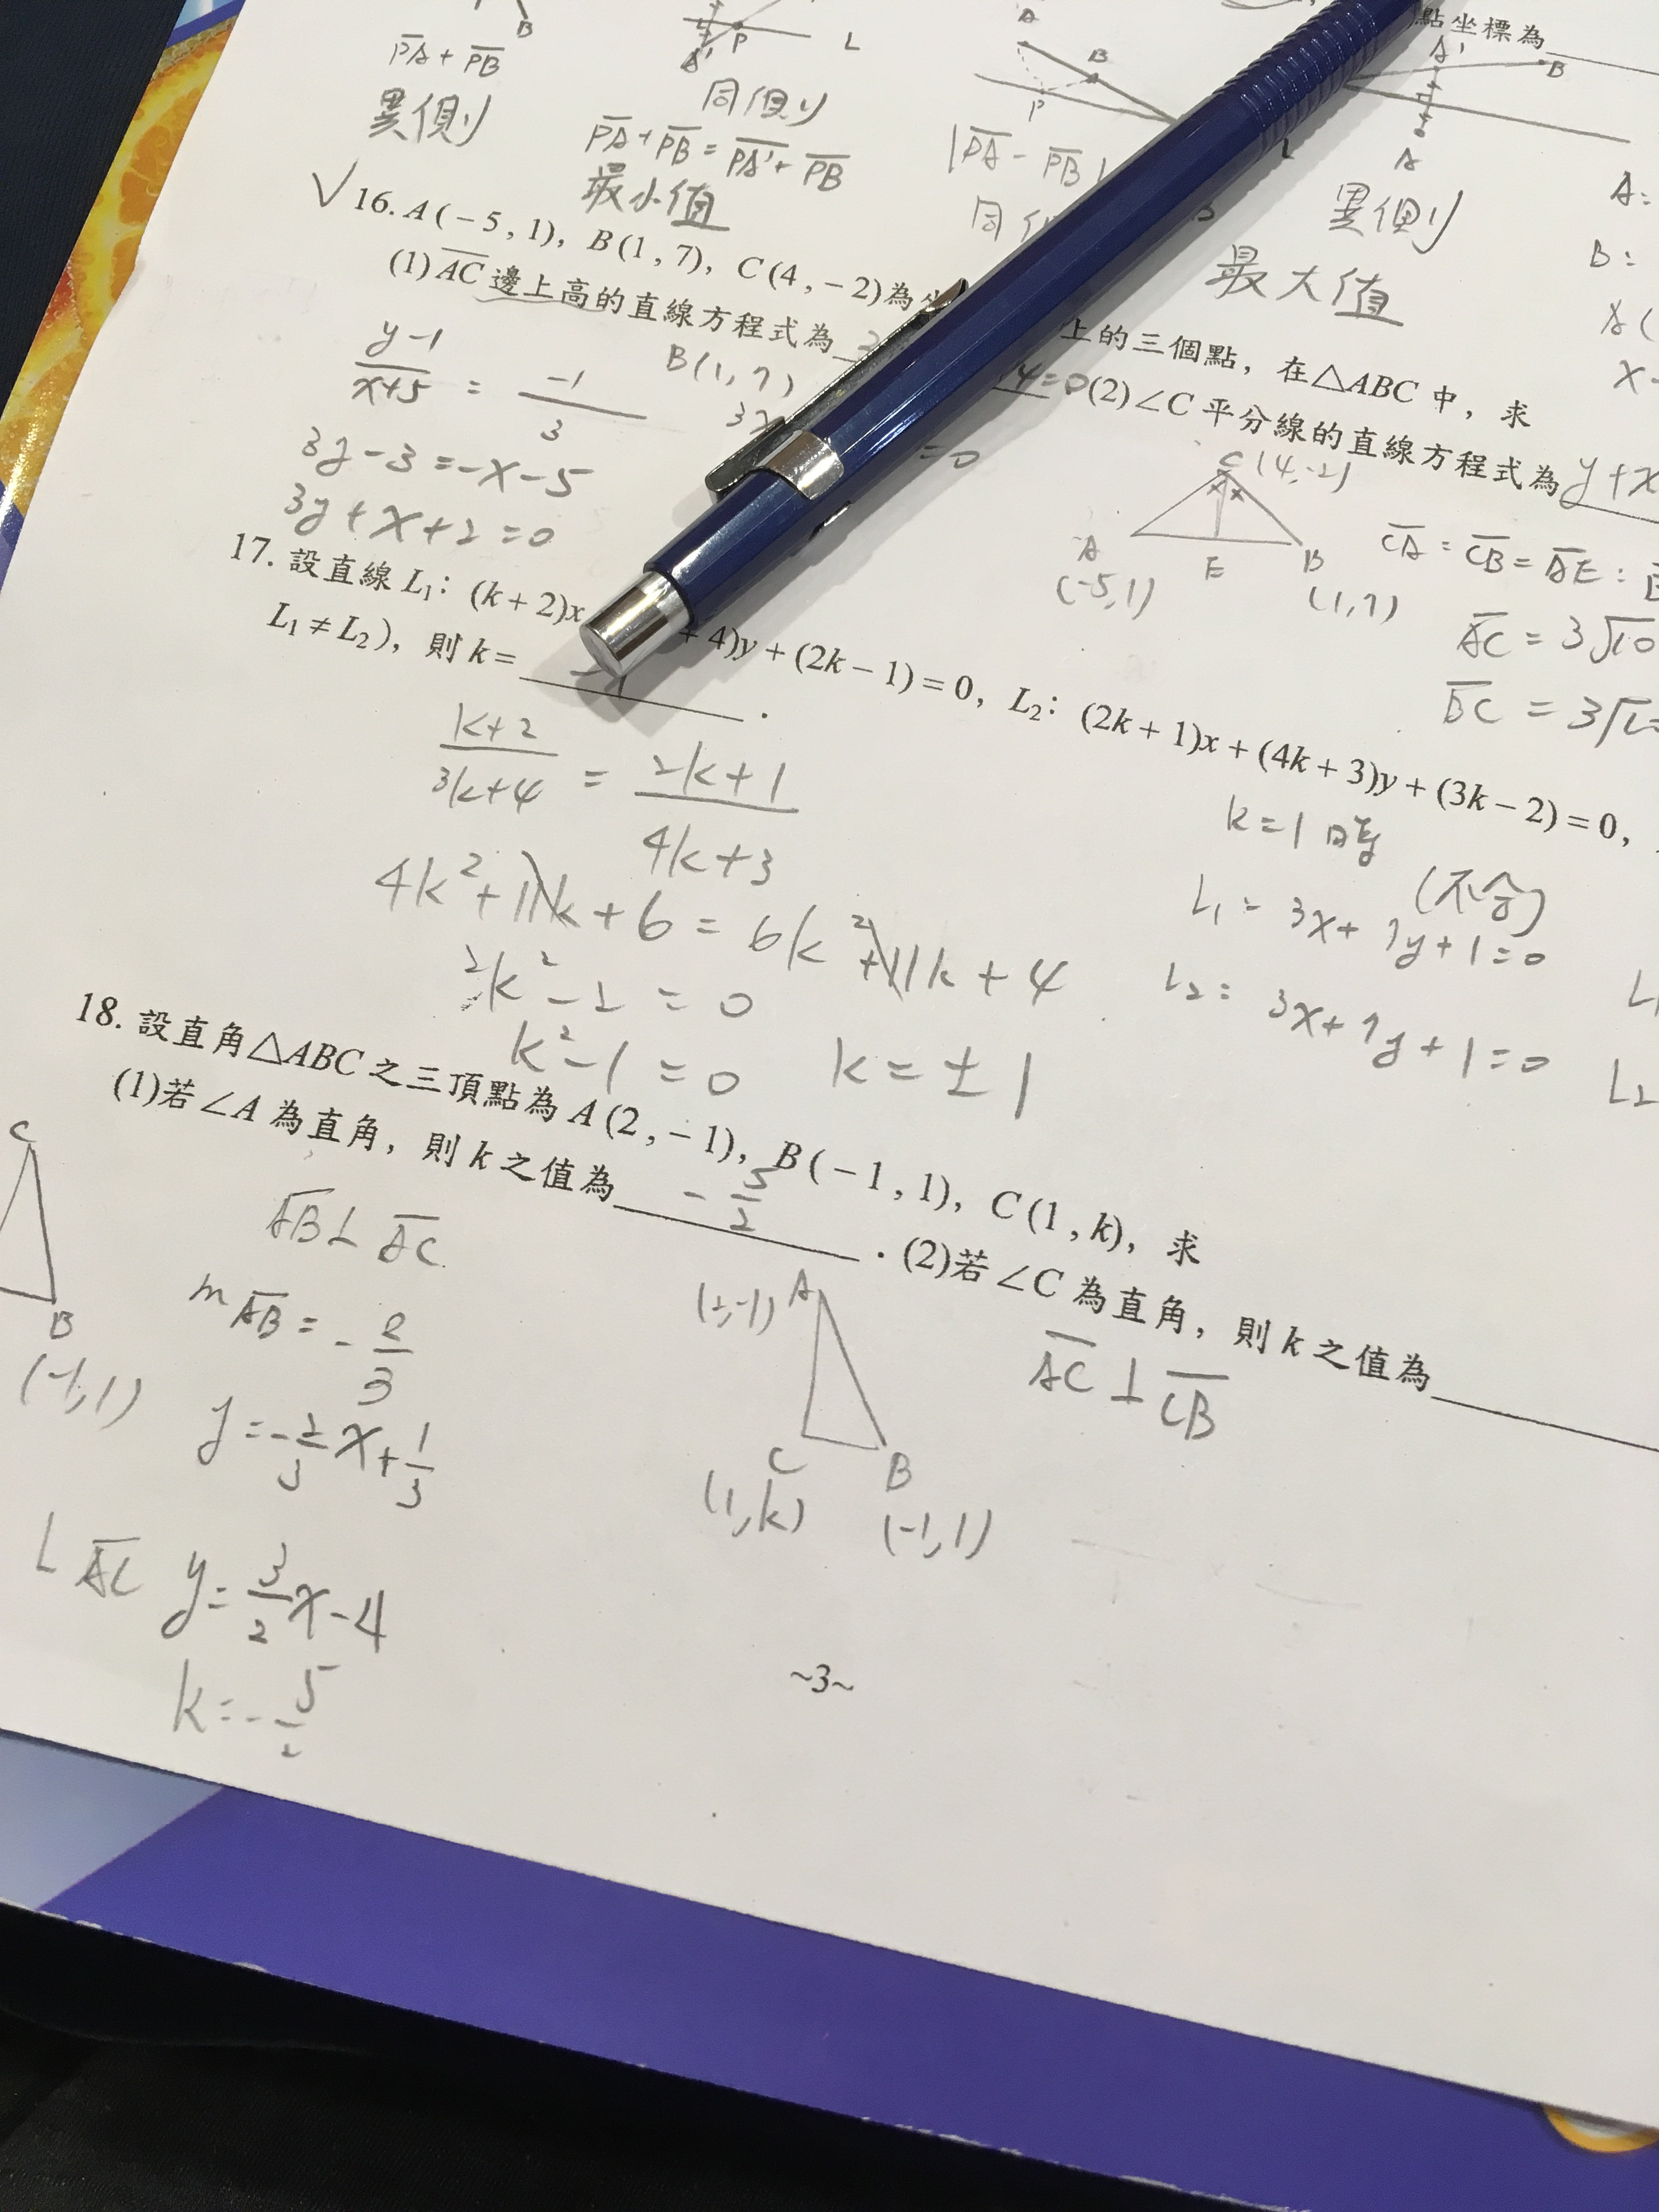 B
P
L
A'
A
B
P
點坐標為
A'
B
A
PA + PB
異側
同側
PA + PB = PA' + PB
最小值
|PA - PB|
同
異側
最大值
A:
B:
√16. A(-5, 1), B(1, 7), C(4, -2)為 上的三個點, 在△ABC 中, 求
(1) AC 邊上高的直線方程式為 4=0 (2)∠C 平分線的直線方程式為 y+x
y-1 / x+5 = -1 / 3
B(1, 7)
3x
=0
3y-3=-x-5
3y+x+2=0
C (4,-2)
A
E
B
(-5,1)
(1,7)
CA : CB = AE :
AC = 3√10
BC = 3√10
17. 設直線 L₁: (k+2)x +4)y+(2k-1)=0, L₂: (2k+1)x+(4k+3)y+(3k-2)=0,
L₁≠L₂), 則 k= -1 .
k+2 / 3k+4 = 2k+1 / 4k+3
4k²+11k+6=6k²+11k+4
2k²-2=0
k²-1=0 k=±1
k=1時
(不合)
L₁: 3x+7y+1=0
L₂: 3x+7y+1=0
L₁
L₂
18. 設直角△ABC 之三頂點為 A(2, -1), B(-1, 1), C(1, k), 求
(1)若∠A 為直角, 則 k 之值為 -5/2 . (2)若∠C 為直角, 則 k 之值為
C
B
(-1,1)
AB⊥AC
mAB = -2/3
y=-2/3x+1/3
L AC y=3/2x-4
k=-5/2
(2,-1) A
C
B
(1,k)
(-1,1)
AC⊥CB
~3~